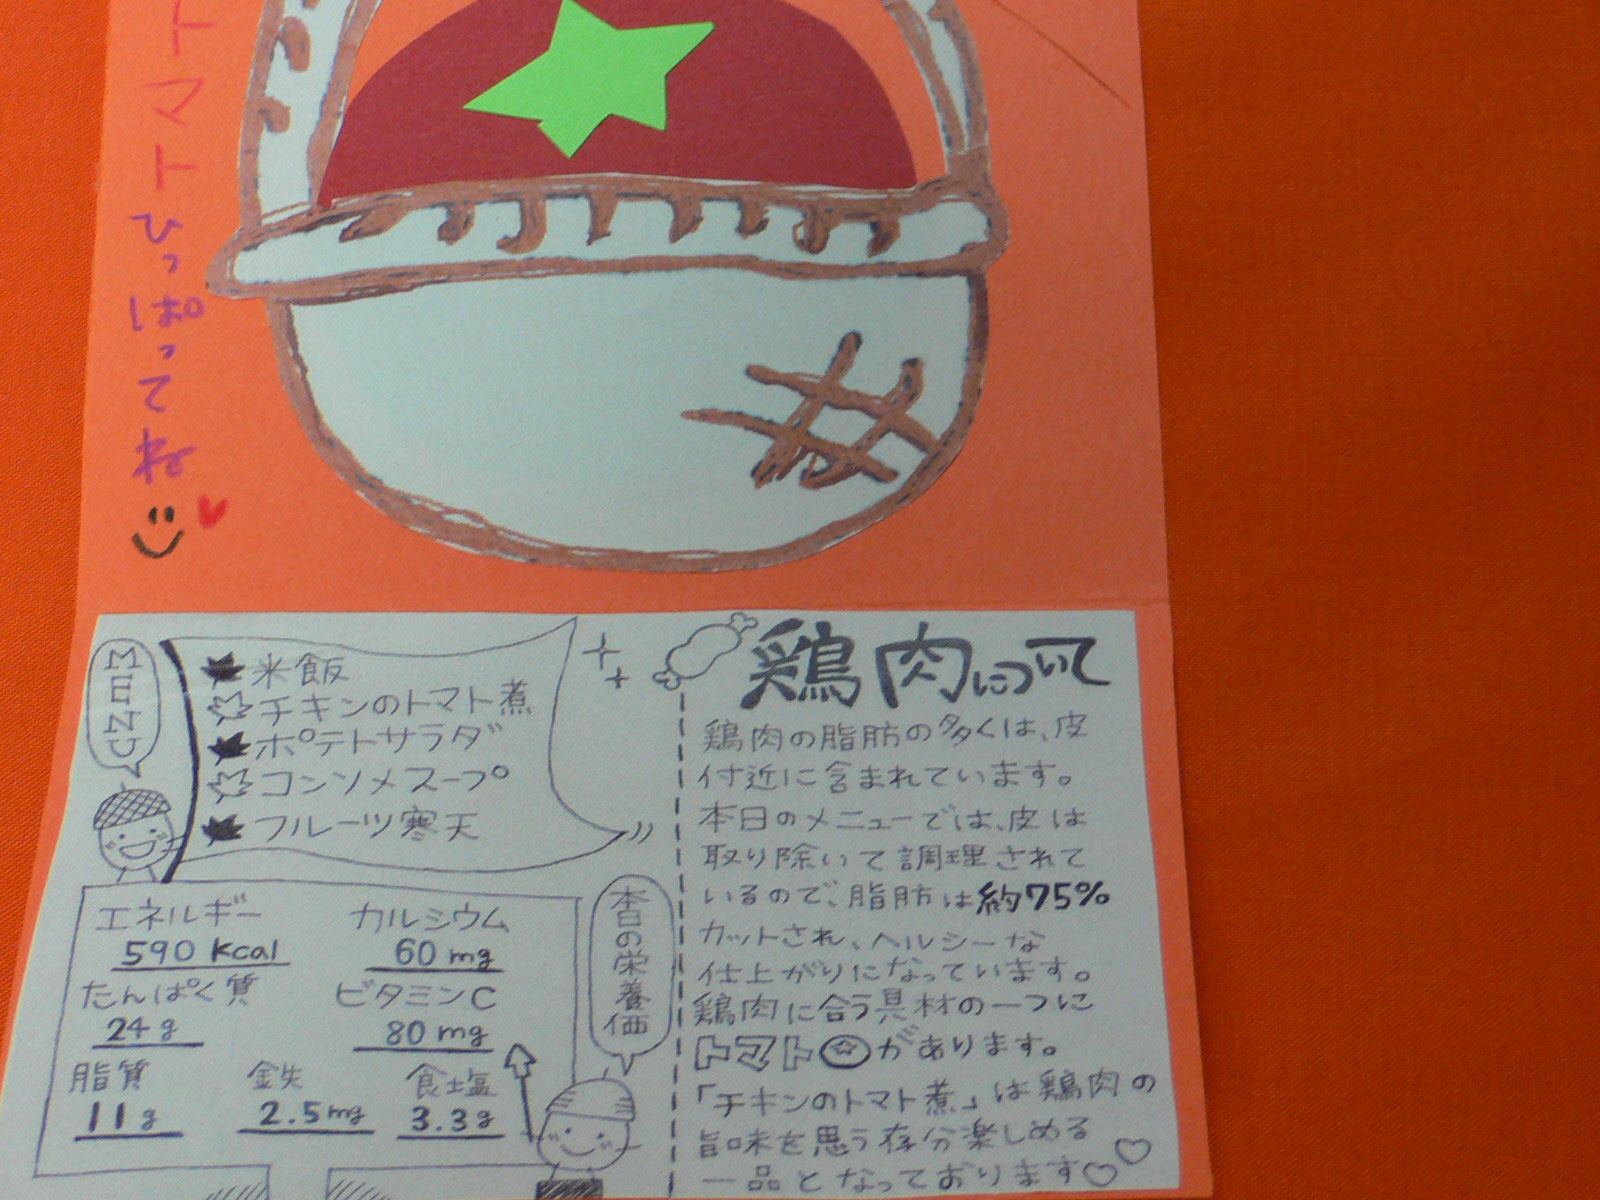 トマト
ひっぱってね
MENU
米飯
チキンのトマト煮
ポテトサラダ
コンソメスープ
フルーツ寒天
エネルギー
590 kcal
カルシウム
60 mg
たんぱく質
24g
ビタミンC
80 mg
脂質
11g
鉄
2.5mg
食塩
3.3g
本日の栄養価
鶏肉について
鶏肉の脂肪の多くは、皮
付近に含まれています。
本日のメニューでは、皮は
取り除いて調理されて
いるので、脂肪は約75%
カットされ、ヘルシーな
仕上がりになっています。
鶏肉に合う具材の一つに
トマトがあります。
「チキンのトマト煮」は鶏肉の
旨味を思う存分楽しめる
一品となっております♡♡